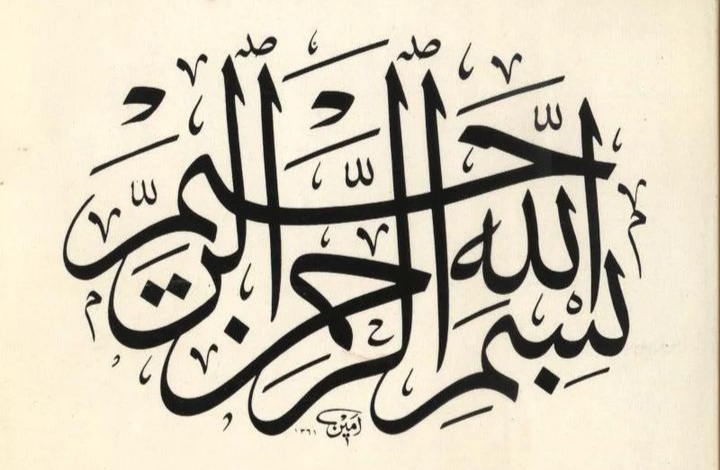 بسم الله الرحمن الرحيم
امين ١٣٦١